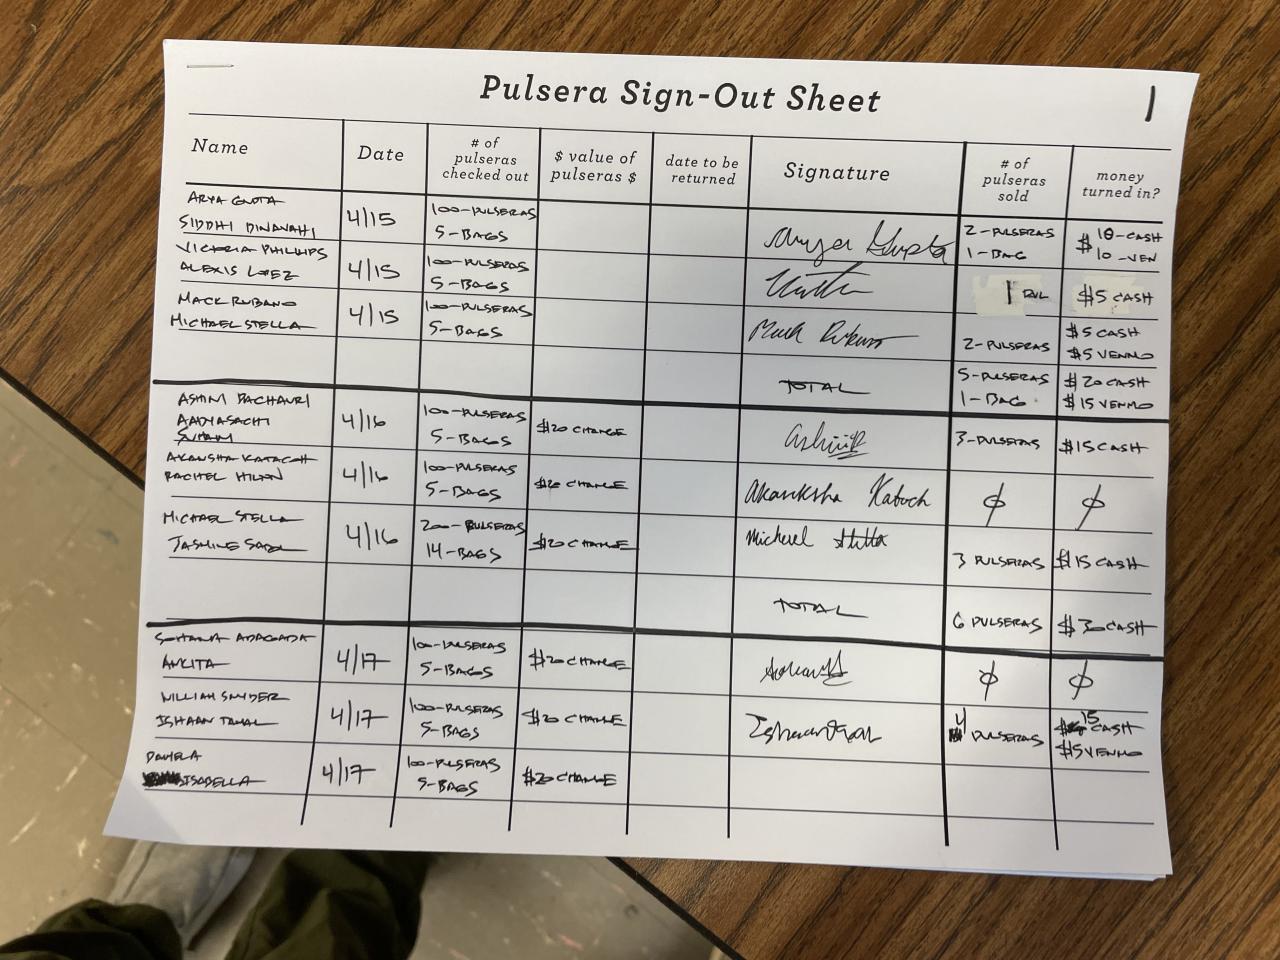 Pulsera Sign-Out Sheet
1
Name
Date
# of
pulseras
checked out
$ value of
pulseras $
date to be
returned
Signature
# of
pulseras
sold
money
turned in?
ARYA GUPTA
SIDDHI DINAVAHI
4/15
100-PULSERAS
5-BAGS
Arya Gupta
2-PULSERAS
1-BAG
$ 10-CASH
10-VEN
VICTORIA PHILLIPS
ALEXIS LOPEZ
4/15
100-PULSERAS
5-BAGS
1 PUL
$5 CASH
MACK RUBANO
MICHAEL STELLA
4/15
100-PULSERAS
5-BAGS
Mack Rubano
2-PULSERAS
$5 CASH
$5 VENMO
TOTAL
5-PULSERAS
1-BAG
$20 CASH
$15 VENMO
ASHINI PACHAURI
AADYASACHI
4/16
100-PULSERAS
5-BAGS
$20 CHANGE
3-PULSERAS
$15 CASH
AKANSHA KATOCH
RACHEL HILTON
4/16
100-PULSERAS
5-BAGS
$20 CHANGE
Akanksha Katoch
∅
∅
MICHAEL STELLA
JASMINE
4/16
200-PULSERAS
14-BAGS
$20 CHANGE
Michael Stella
3 PULSERAS
$15 CASH
TOTAL
6 PULSERAS
$30 CASH
SOHANA ADAGADA
ANKITA
4/17
100-PULSERAS
5-BAGS
$20 CHANGE
∅
∅
WILLIAM SNYDER
ISHAAN
4/17
100-PULSERAS
5-BAGS
$20 CHANGE
4 PULSERAS
$15 CASH
$5 VENMO
DANIELA
ISABELLA
4/17
100-PULSERAS
5-BAGS
$20 CHANGE